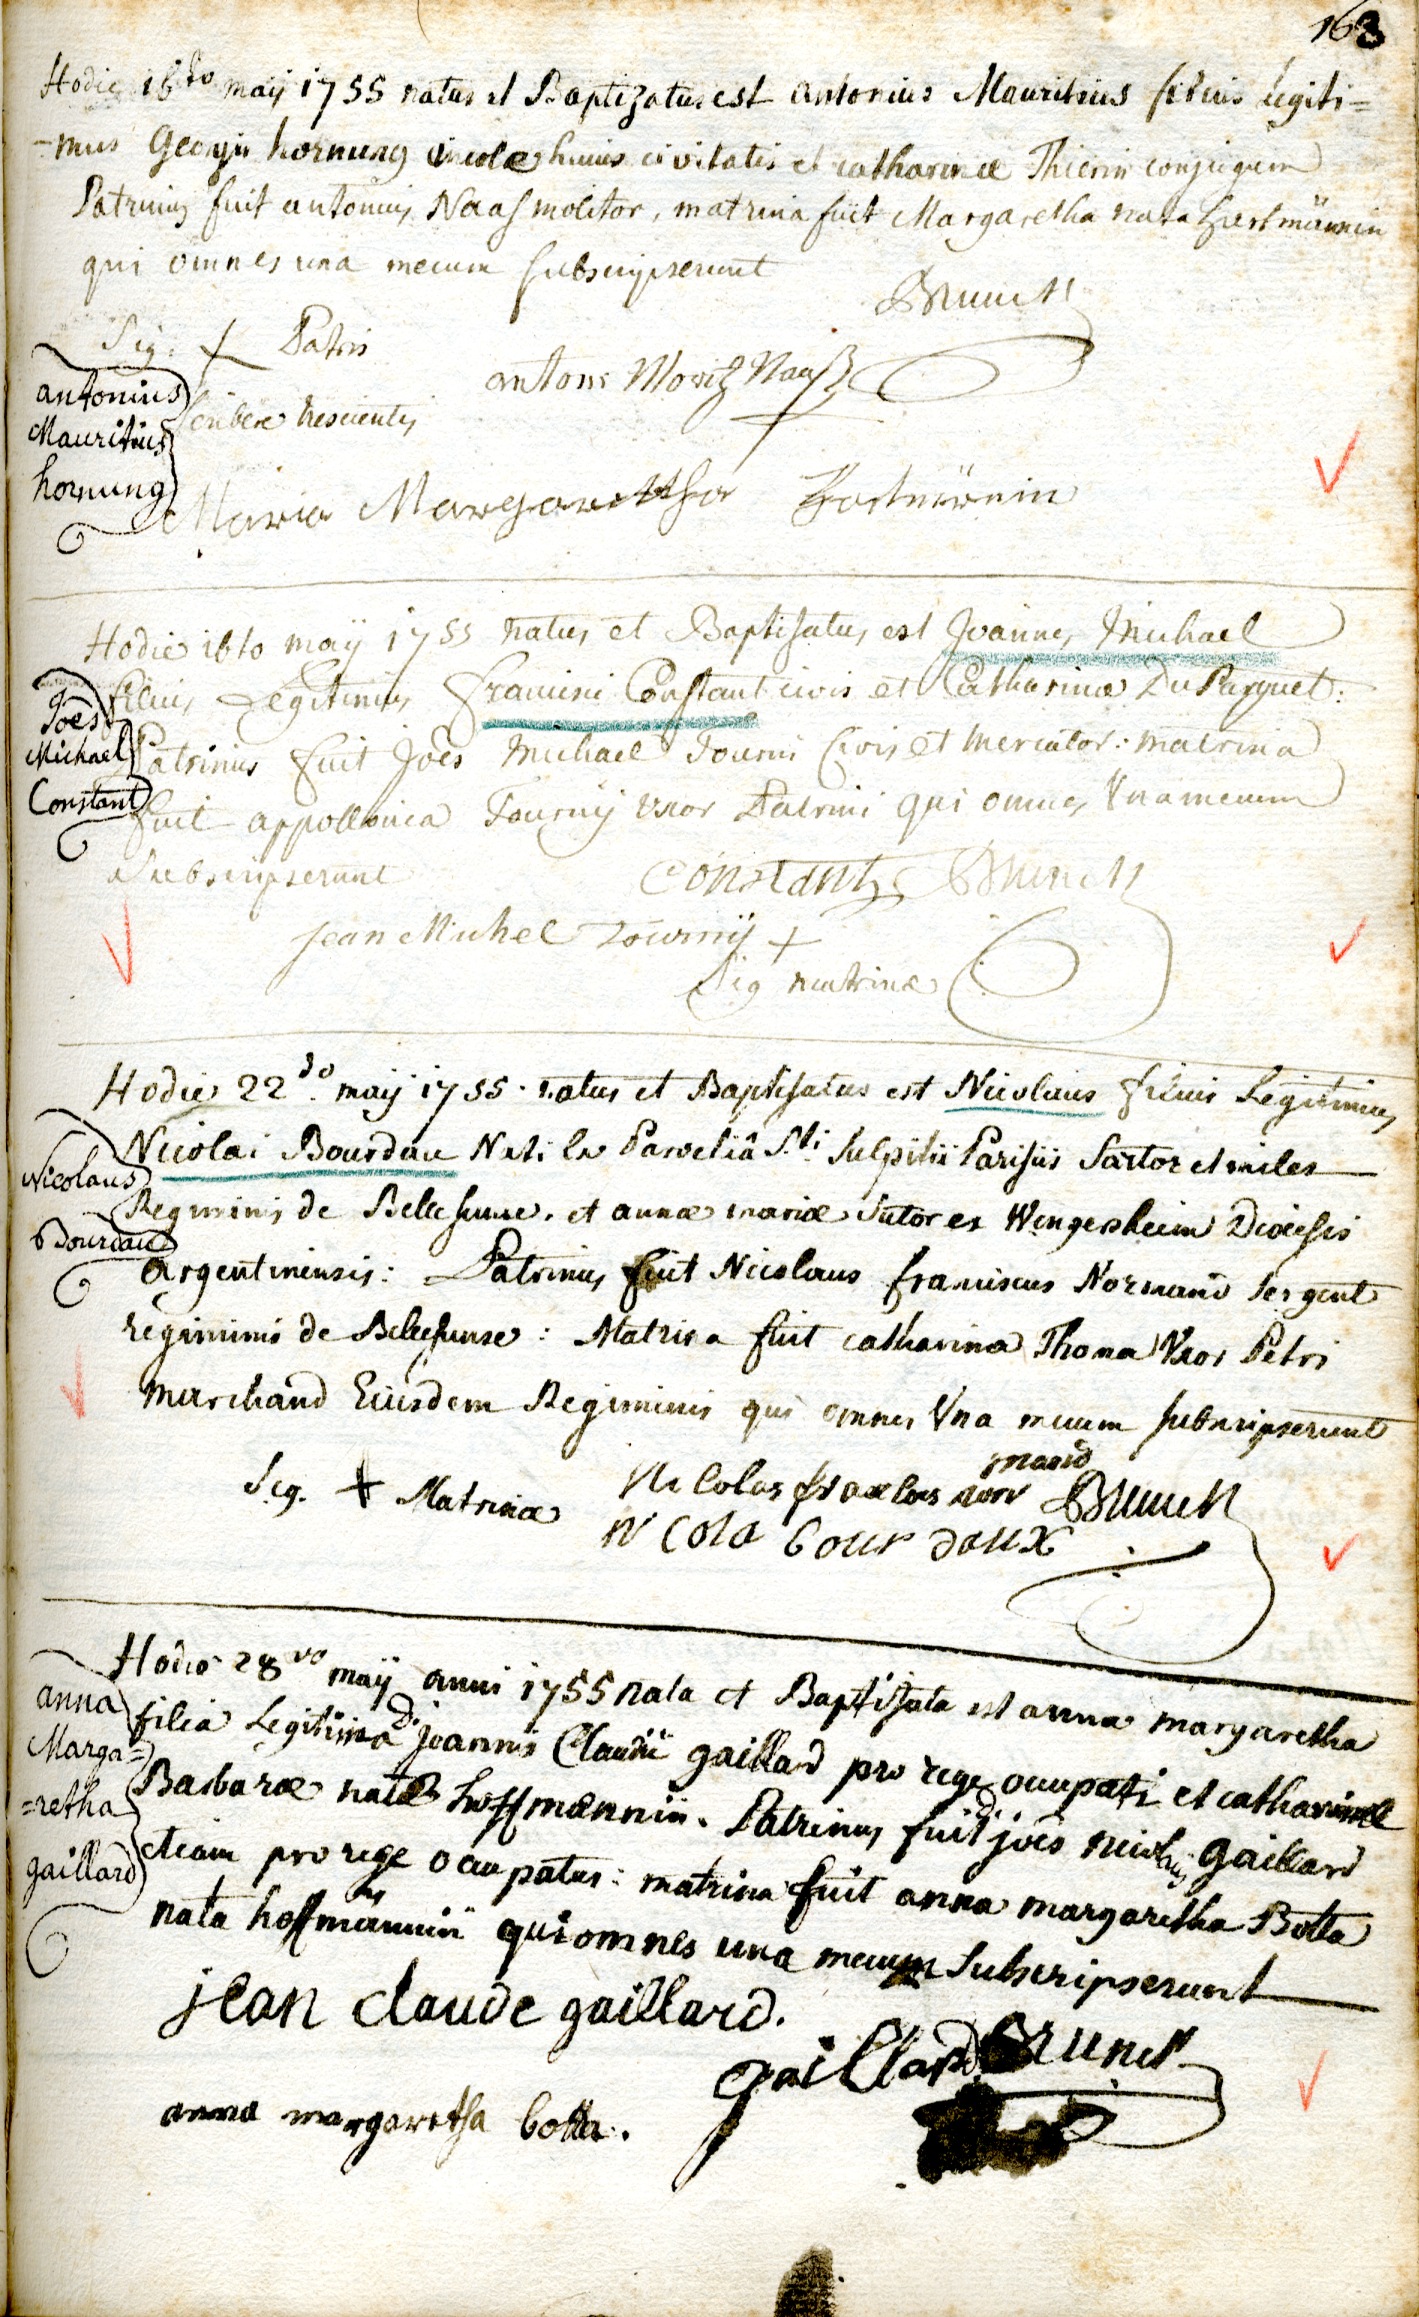 163
Hodie 16to maij 1755 natus et Baptizatus est antonius Mauritius filius legiti=
=mus Georgii hornung incolæ huius civitatis et catharinæ Thierin conjugum
Patrinus fuit antonius Naas molitor, matrina fuit Margaretha nata hartmännin
qui omnes una mecum subscripserunt
Brunck
Sig. + Patris
scribere nescientis
antoni Moritz Nauß
antonius
Mauritius
hornung
Maria Margaretha Hartmännin
Hodie 16to maij 1755 natus et Baptisatus est Joannes Michael
filius Legitimus Francisci Constant civis et Catharinæ Du Parquet:
Patrinus fuit Joês Michael Tourni Civis et mercator: matrina
fuit appollonia Tournij uxor Patrini qui omnes Una mecum
Subscripserunt
Joês
Michael
Constant
Constant Brunck
Jean Michel Tournij +
Sig matrinæ
Hodie 22do maij 1755 natus et Baptisatus est Nicolaus filius Legitimus
Nicolai Bourdau Nati ex Paroeciâ Sti Sulpitii Parisiis Sartor et miles
Regiminis de Bellesunse. et annæ mariæ Sutor ex Wingersheim Dioecesis
argentinensis: Patrinus fuit Nicolaus franciscus Normand sergent
regiminis de Bellesunse: Matrina fuit catharina Thoma Uxor Petri
marchand Eiusdem Regiminis qui omnes Una mecum subscripserunt
Nicolaus
Bourdau
Sig. + Matrinæ
Nicolas francois nor
mand
Brunck
Nicola bourdaux
Hodie 28vo maij anni 1755 nata et Baptisata est anna margaretha
filia Legitima D. joannis Claudii gaillard pro rege occupati et catharinæ
Barbaræ natæ hoffmännin. Patrinus fuit D. joês nicolaus gaillard
etiam pro rege occupatus: matrina fuit anna margaretha Botta
nata hoffmännin qui omnes una mecum Subscripserunt
anna
Marga=
=retha
gaillard
jean claude gaillard.
gaillard Brunck
anna margaretha botta.